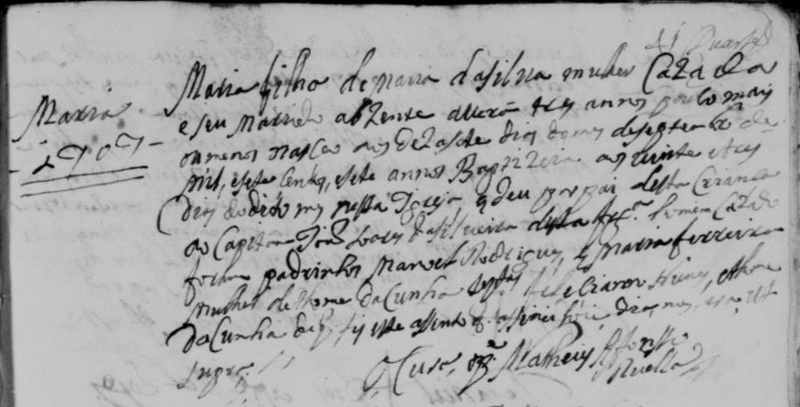 Maria
1707
Maria filha de Maria da Silva mulher Cazada
e seu Marido abzente avera tres annos pouco mais
ou menos nasceo aos dezasete dias do mes de septembro de
mil, e sete centos, e sete annos Baptizei-a aos vinte e tres
dias do dito mes nesta Igreja e deu por pai desta Crianca
ao Capitam Soares da Silveira desta frg.ª homem Cazado
foram padrinhos Manoel Rodrigues, e Maria Ferreira
mulher de thome da Cunha testas feleciano Nunes, e thome
da Cunha de q fis este assento q assinei hoie dia, mes, era ut
supra.
O Cura Matheus Affonsso